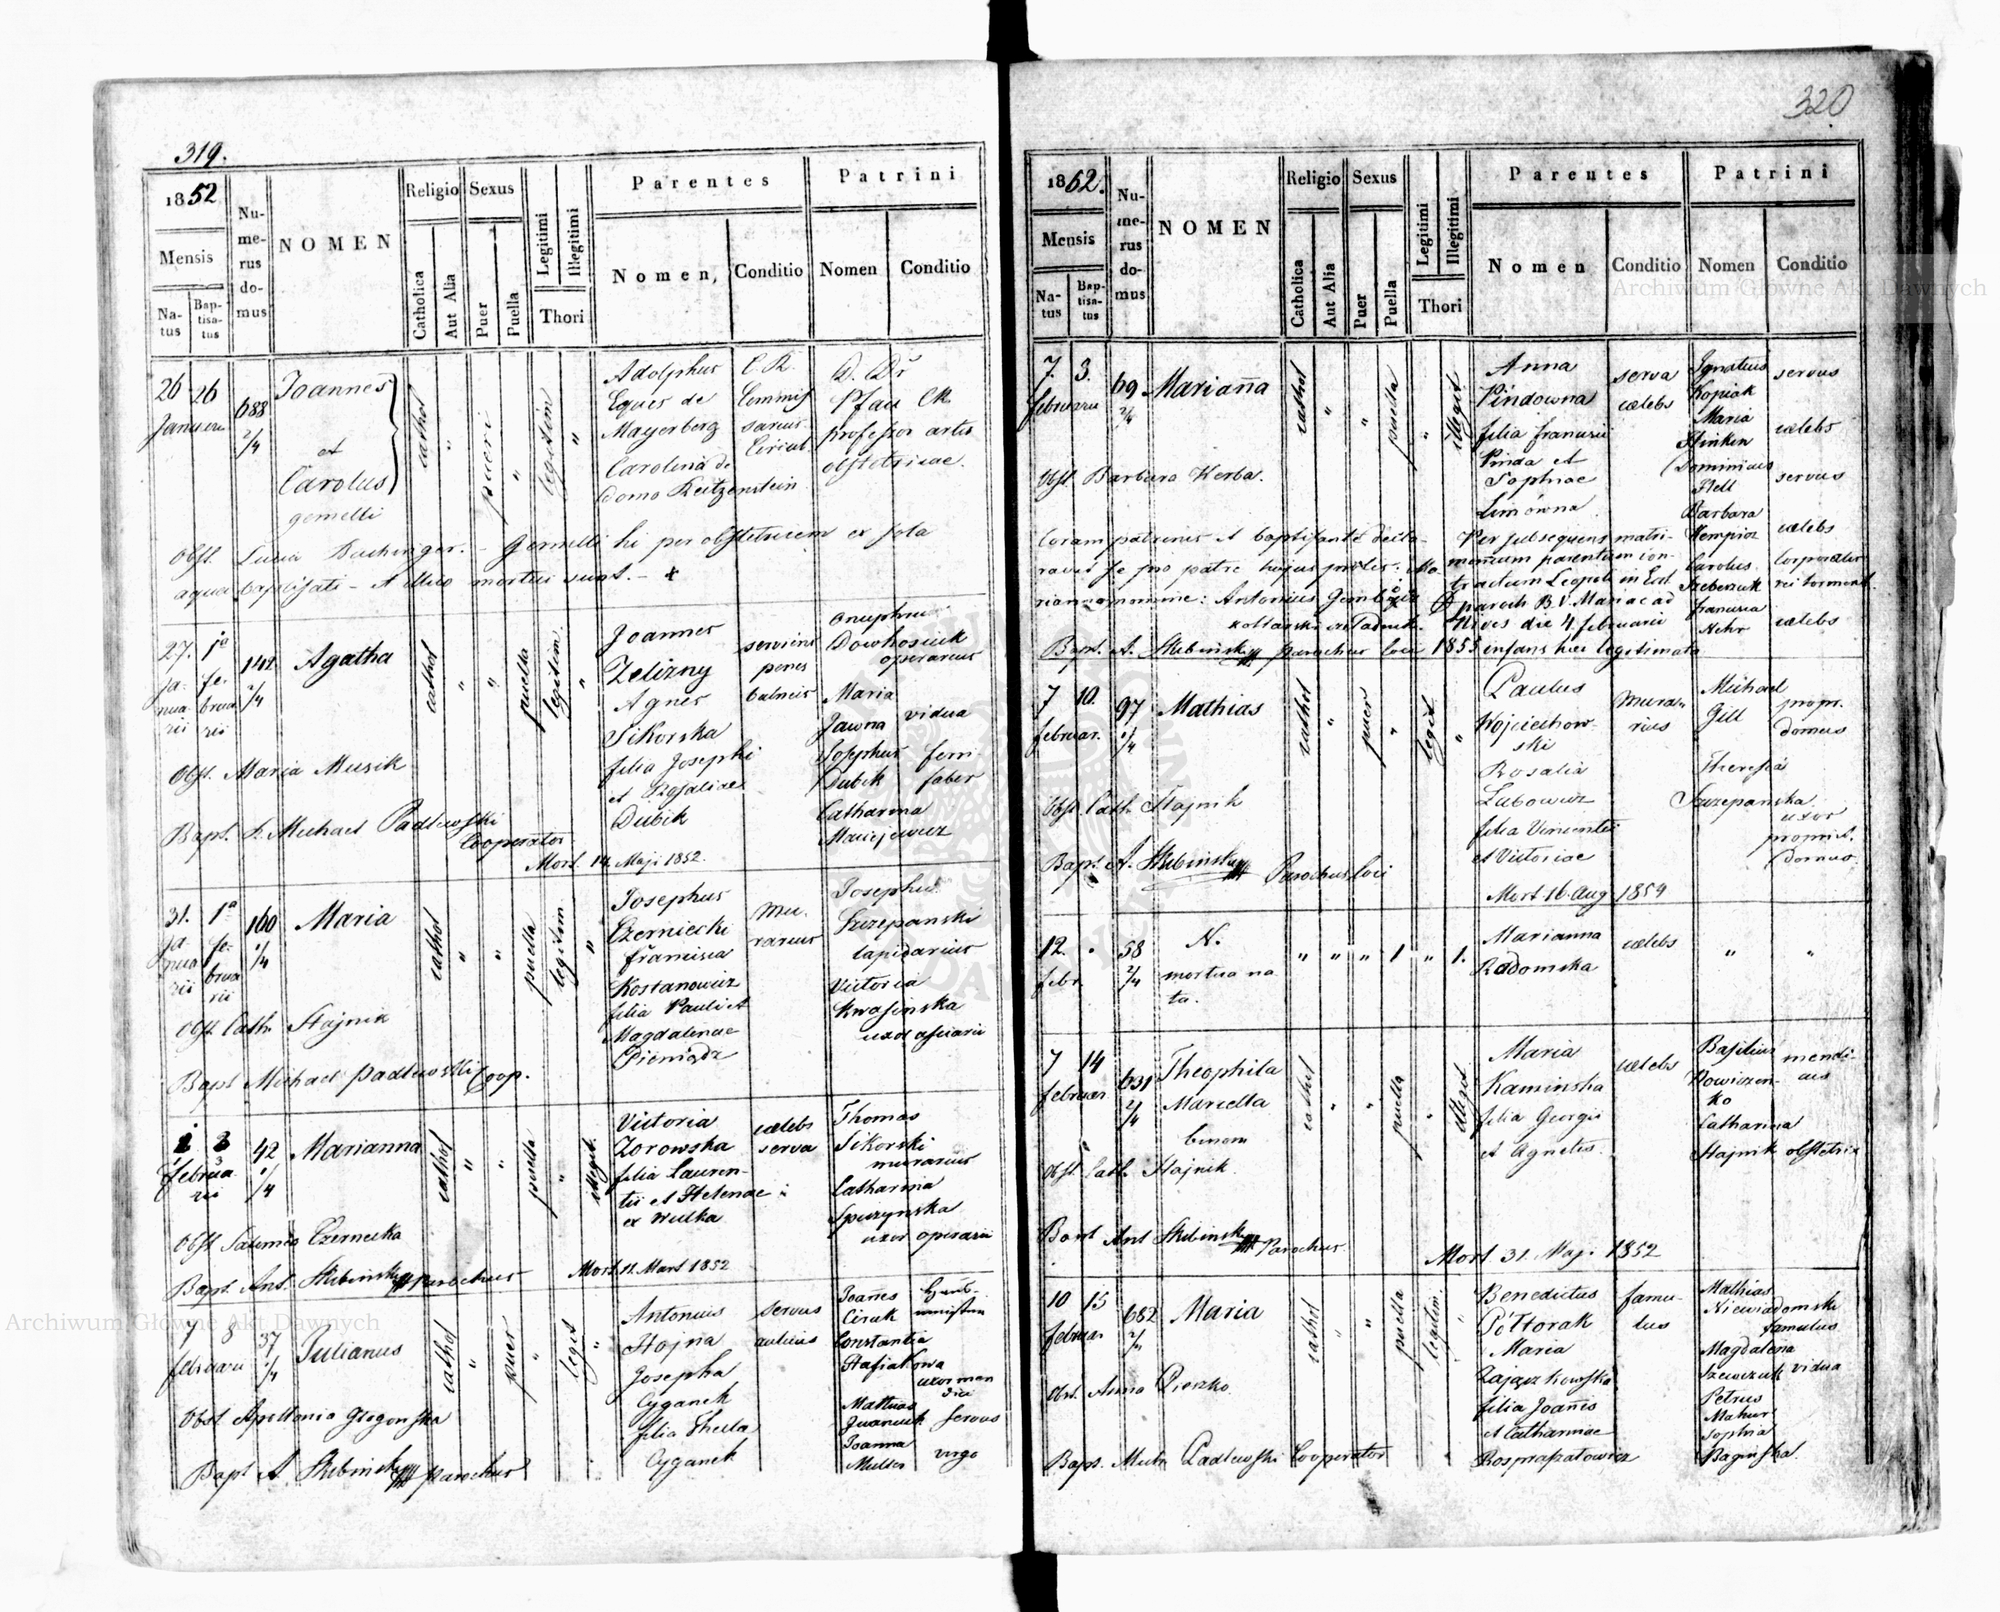 319.
1852
Mensis
Natus
Baptisatus
Numerus domus
NOMEN
Religio
Catholica
Aut Alia
Sexus
Puer
Puella
Legitimi
Illegitimi
Thori
Parentes
Nomen,
Conditio
Patrini
Nomen
Conditio
26 26
Januarii
688
2/4
Joannes
et
Carolus
gemelli
cathol
pueri
legitim
Adolphus
Eques de
Mayerberg
Carolina de
domo Reitzenstein
C. R.
Commis
sarius
Circul.
D. Dr
Pfau CR
professor artis
obstetricae.
Obst. Lucia Buchinger. - Gemelli hi per obstetricem ex sola
aqua baptisati - et illico mortui sunt. - +
27. 1a
januarii
februarii
142
2/4
Agatha
cathol
puella
legitim.
Joannes
Zelizny
Agnes
Sikorska
filia Josephi
et Rosaliae
Dubik
serviens
penes
balneis
Onuphrius
operarius
Maria
Jawna
vidua
Josephus
Dubik
ferri
faber
Catharina
Maciejewicz
Obst. Maria Muzik
Bapt. Michael Padlewski
Cooperator
Mort. 14. Maji 1852.
31. 1a
januarii
februarii
160
1/4
Maria
cathol
puella
legitim.
Josephus
Czerniecki
Francisca
Kostanowicz
filia Pauli et
Magdalenae
Pieniądz
mu-
rarius
Josephus
Szczepanski
lapidarius
Victoria
Kwasinska
uxor asciarii
Obst Cath Stajnik
Bapt Michael Padlewski Coop.
2 3
februarii
42
1/4
Marianna
cathol
puella
illegit.
Victoria
Zorowska
filia Lauren-
tii et Helenae
ex Wulka
caelebs
serva
Thomas
Sikorski
murarius
Catharina
Spiczynska
uxor operarii
Obst Salomea Czernecka
Bapt. Ant. Skibinski parochus
Mort. 11. Mart 1852
7 8
februarii
37
1/4
Julianus
cathol
puer
legit
Antonius
Stojna
Josepha
Cyganek
filia Theclae
Cyganek
servus
aulicus
Joannes
Ciruk
Constantia
Stafiakowa
uxor men
dici
Mathias
Iwanciuk
servus
Joanna
Muller
virgo
Obst Apollonia Glogowska
Bapt A. Skibinski parochus
320
1852.
Mensis
Natus
Baptisatus
Numerus domus
NOMEN
Religio
Catholica
Aut Alia
Sexus
Puer
Puella
Legitimi
Illegitimi
Thori
Parentes
Nomen
Conditio
Patrini
Nomen
Conditio
7. 3.
februarii
69
2/4
Marianna
cathol
puella
illegit
Anna
Pindowna
filia Francisci
Pinda et
Sophiae
serva
caelebs
Ignatius
Kopiak
servus
Maria
Hinken
caelebs
Dominicus
Hell
servus
Barbara
Kempior
caelebs
Carolus
Francisca
Nehr
caelebs
Obst Barbara Kerba.
Coram patrinis et baptisante decla-
ravit se pro patre hujus prolis: Ma-
rianna nomine: Antonius
Per subsequens matri-
monium parentum con-
tractum Leopoli in Eccl
paroch B. V. Mariae ad
Nives die 4. februarii
1855 infans haec legitimata
Bapt. A. Skibinski parochus loci
7 10.
februar.
97
1/4
Mathias
cathol
puer
legit
Paulus
Wojciechow-
ski
Rosalia
Lubowicz
filia Vincentii
et Victoriae
mura-
rius
Michael
Gill
propr.
domus
Theresia
Szczepanska
uxor
propriet.
domus
Obst Cath Stajnik
Bapt A. Skibinski Parochus loci
Mort 16. Aug 1854
12.
febr
58
2/4
N.
mortua na
ta.
1
1.
Marianna
Radomska
caelebs
7 14
februar
631
2/4
Theophila
Marcella
binom
cathol
puella
illegit
Maria
Kaminska
filia Georgii
et Agnetis.
caelebs
Basilius
Nowiczen-
ko
mendi-
cus
Catharina
Stajnik obstetrix
Obst Cath Stajnik.
Bapt Ant Skibinski Parochus.
Mort 31. Maji 1852
10 15
februar
682
2/4
Maria
cathol
puella
legitim.
Benedictus
Półtorak
Maria
Zajączkowska
filia Joannis
et Catharinae
Rosprapatowicz
famu-
lus
Mathias
Niewiadomski
famulus
Magdalena
Szewczuk vidua
Petrus
Mazur
Sophia
Baginska.
Obst. Anna Pieszko.
Bapt. Mich Padlewski Cooperator
Archiwum Główne Akt Dawnych
Archiwum Główne Akt Dawnych